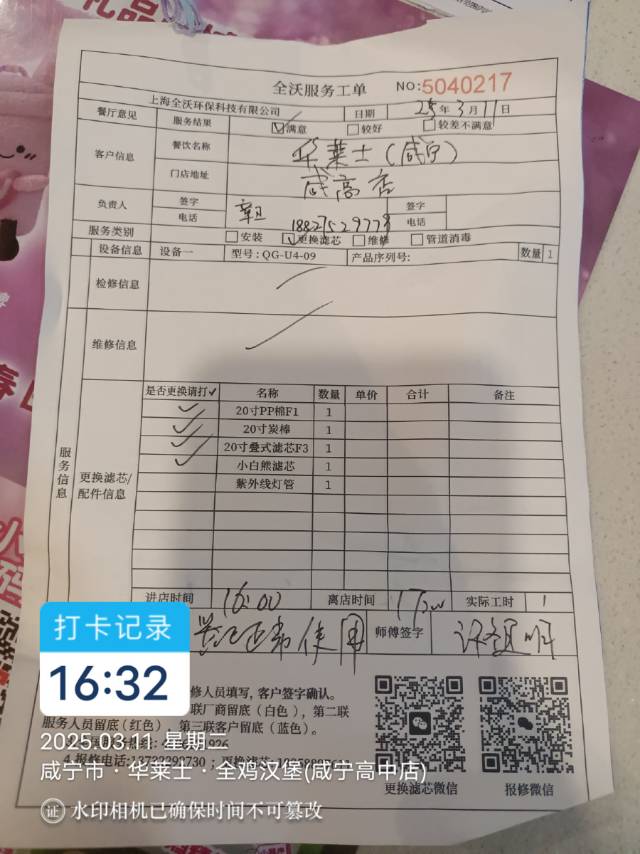 全沃服务工单 NO:5040217
上海全沃环保科技有限公司 日期 25年3月11日
餐厅意见 服务结果 ☑满意 □较好 □较差不满意
客户信息 餐饮名称 华莱士(咸宁)
门店地址 咸高店
负责人 签字 签字
电话 18827529773 电话
服务类别 □安装 ☑更换滤芯 □维修 □管道消毒
设备信息 设备一 型号:QG-U4-09 产品序列号: 数量 1
检修信息
维修信息
服务信息
更换滤芯/配件信息
是否更换请打✓ 名称 数量 单价 合计 备注
✓ 20寸PP棉F1 1
✓ 20寸炭棒 1
✓ 20寸叠式滤芯F3 1
✓ 小白熊滤芯 1
紫外线灯管 1
进店时间 16:00 离店时间 17:00 实际工时 1
正常使用 师傅签字
修人员填写,客户签字确认。
联厂商留底(白色),第二联
服务人员留底(红色),第三联客户留底(蓝色)。
更换滤芯微信 报修微信
打卡记录
16:32
2025.03.11 星期二
咸宁市·华莱士·全鸡汉堡(咸宁高中店)
证 水印相机已确保时间不可篡改